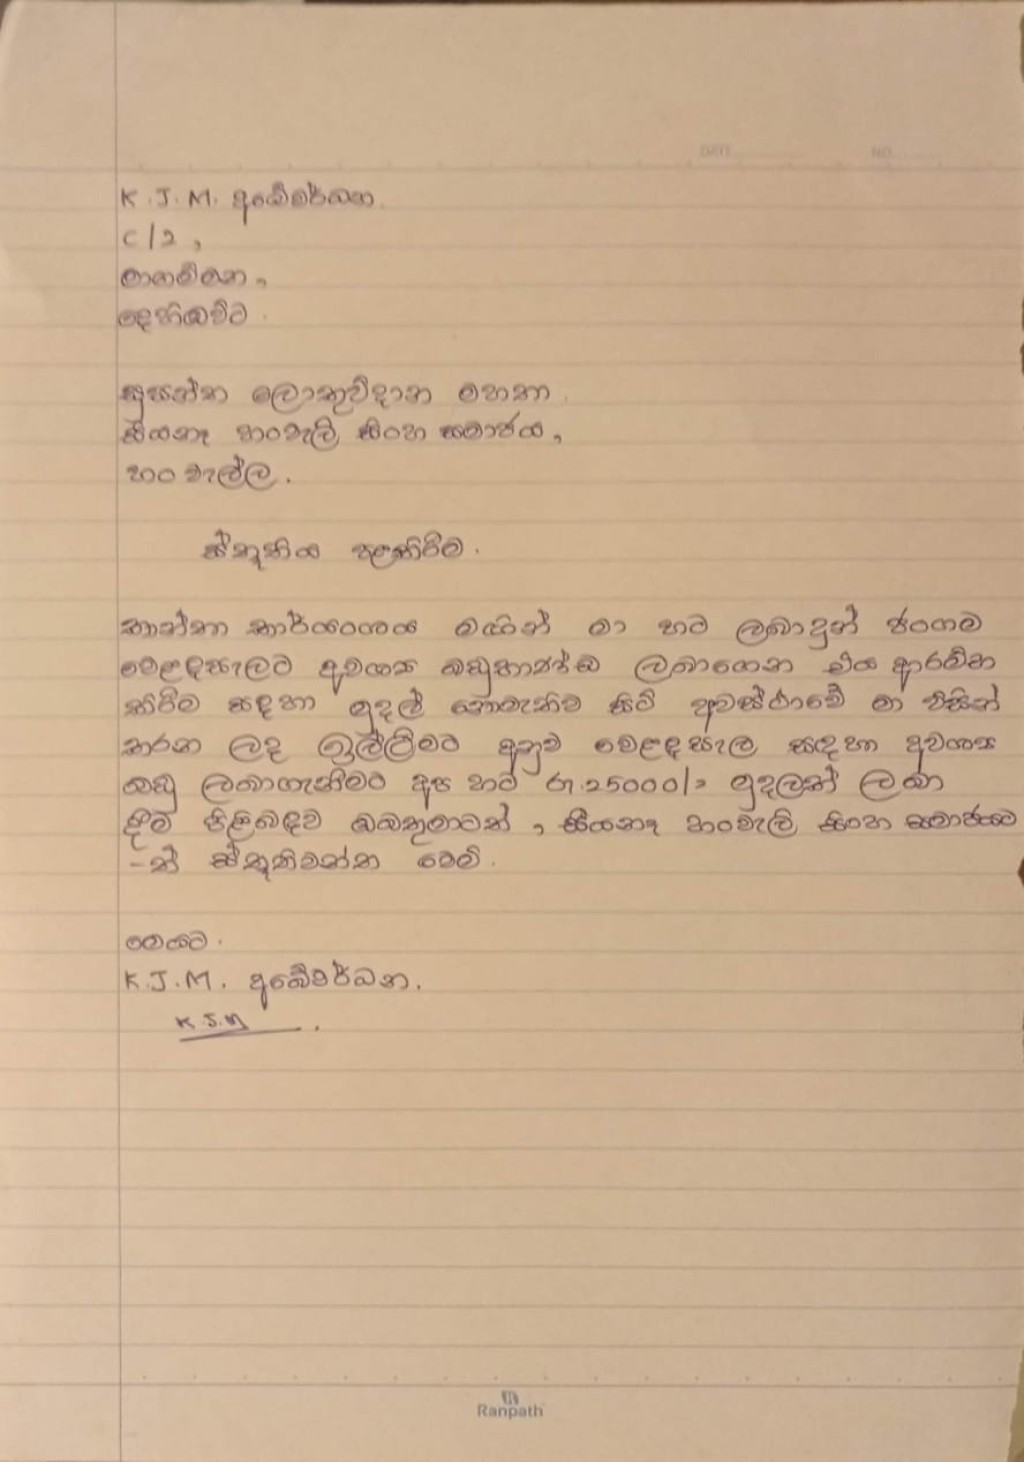 DATE
NO
K.J.M. අබේවර්ධන.
C/2,
මාගම්මන,
දෙහිඕවිට.
සුසන්ත ලොකුවිදාන මහතා.
සීයනෑ හංවැලි සිංහ සමාජය,
හංවැල්ල.
ස්තූතිය පළකිරීම.
කාන්තා කාර්යාංශය මඟින් මා හට ලබාදුන් ජංගම
වෙළඳසැලට අවශ්‍ය බඩුභාණ්ඩ ලබාගෙන එය ආරම්භ
කිරීම සඳහා මුදල් නොමැතිව සිටි අවස්ථාවේ මා විසින්
කරන ලද ඉල්ලීමට අනුව වෙළඳසැල සඳහා අවශ්‍ය
බඩු ලබාගැනීමට අප හට රු.25000/= මුදලක් ලබා
දීම පිළිබඳව ඔබතුමාටත්, සීයනෑ හංවැලි සිංහ සමාජයට
-ත් ස්තූතිවන්ත වෙමි.
මෙයට.
K.J.M. අබේවර්ධන.
K.J.M
Ranpath